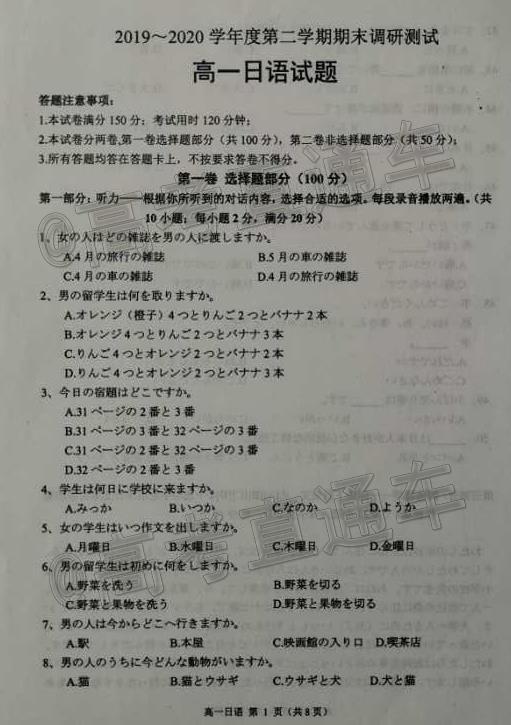 2019～2020 学年度第二学期期末调研测试
高一日语试题
答题注意事项：
1.本试卷满分 150 分；考试用时 120 分钟；
2.本试卷分两卷,第一卷选择题部分（共 100 分），第二卷非选择题部分（共 50 分）；
3.所有答题均答在答题卡上，不按要求答卷不得分。
第一卷 选择题部分（100 分）
第一部分：听力——根据你所听到的对话内容，选择合适的选项。每段录音播放两遍。（共
10 小题；每小题 2 分，满分 20 分）
1、女の人はどの雑誌を男の人に渡しますか。
A.4 月の旅行の雑誌 B.5 月の車の雑誌
C.4 月の車の雑誌 D.4 月の旅行の雑誌
2、男の留学生は何を取りますか。
A.オレンジ（橙子）4 つとりんご 2 つとバナナ 2 本
B.オレンジ 4 つとりんご 2 つとバナナ 3 本
C.りんご 4 つとオレンジ 2 つとバナナ 2 本
D.りんご 4 つとオレンジ 2 つとバナナ 3 本
3、今日の宿題はどこですか。
A.31 ページの 2 番と 3 番
B.31 ページの 3 番と 32 ページの 3 番
C.31 ページの 2 番と 32 ページの 3 番
D.32 ページの 2 番と 3 番
4、学生は何日に学校に来ますか。
A.みっか B.いつか C.なのか D.ようか
5、女の学生はいつ作文を出しますか。
A.月曜日 B.水曜日 C.木曜日 D.金曜日
6、男の留学生は初めに何をしますか。
A.野菜を洗う B.野菜を切る
C.野菜と果物を洗う D.野菜と果物を切る
7、男の人は今からどこへ行きますか。
A.駅 B.本屋 C.映画館の入り口 D.喫茶店
8、男の人のうちに今どんな動物がいますか。
A.猫 B.猫とウサギ C.ウサギと犬 D.犬と猫
高一日语 第 1 页（共 8 页）
@高考直通车
@高考直通车